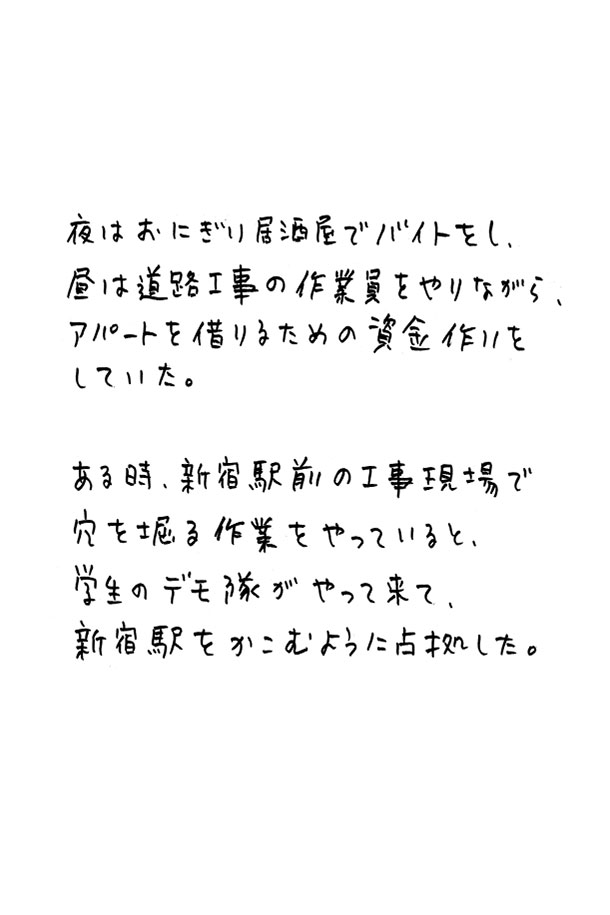 夜はおにぎり居酒屋でバイトをし、
昼は道路工事の作業員をやりながら、
アパートを借りるための資金作りを
していた。
ある時、新宿駅前の工事現場で
穴を堀る作業をやっていると、
学生のデモ隊がやって来て、
新宿駅をかこむように占拠した。